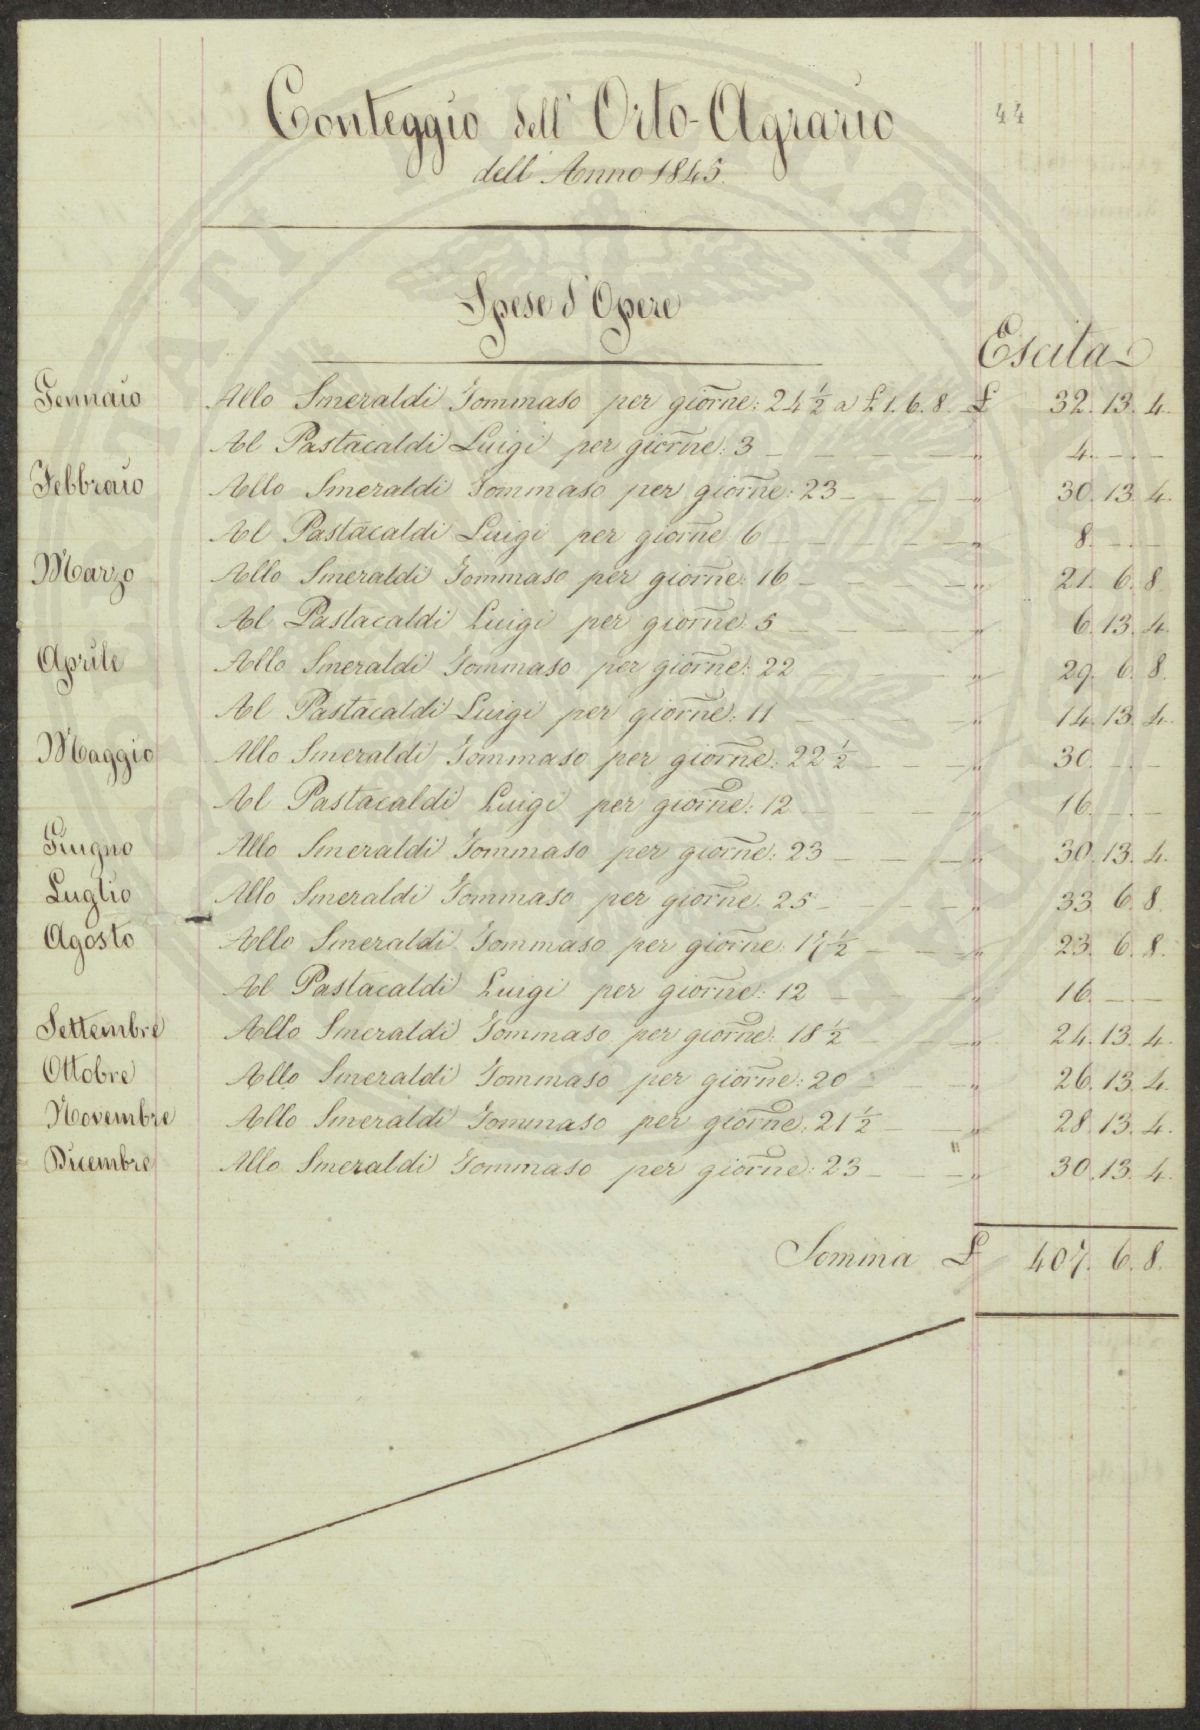 Conteggio dell' Orto-Agrario
44
dell' Anno 1845.
Spese d'Opere
Escita
Gennaio Allo Smeraldi Tommaso per giorne: 24 1/2 a £ 1. 6. 8. £ 32. 13. 4.
Al Pastacaldi Luigi per giorne: 3 — — — — — „ 4. — —
Febbraio Allo Smeraldi Tommaso per giorne: 23 — — — — „ 30. 13. 4.
Al Pastacaldi Luigi per giorne 6 — — — — — „ 8. — —
Marzo Allo Smeraldi Tommaso per giorne: 16 — — — — — „ 21. 6. 8.
Al Pastacaldi Luigi per giorne: 5 — — — — — „ 6. 13. 4.
Aprile Allo Smeraldi Tommaso per giorne: 22 — — — — „ 29. 6. 8.
Al Pastacaldi Luigi per giorne: 11 — — — — — „ 14. 13. 4.
Maggio Allo Smeraldi Tommaso per giorne: 22 1/2 — — — „ 30. — —
Al Pastacaldi Luigi per giorne: 12 — — — — „ 16. — —
Giugno Allo Smeraldi Tommaso per giorne: 23 — — — — „ 30. 13. 4.
Luglio Allo Smeraldi Tommaso per giorne: 25 — — — — „ 33. 6. 8.
Agosto Allo Smeraldi Tommaso per giorne: 17 1/2 — — — „ 23. 6. 8.
Al Pastacaldi Luigi per giorne: 12 — — — — „ 16. — —
Settembre Allo Smeraldi Tommaso per giorne: 18 1/2 — — — „ 24. 13. 4.
Ottobre Allo Smeraldi Tommaso per giorne: 20 — — — „ 26. 13. 4.
Novembre Allo Smeraldi Tommaso per giorne: 21 1/2 — — — „ 28. 13. 4.
Dicembre Allo Smeraldi Tommaso per giorne: 23 — — — „ 30. 13. 4.
Somma £ 407. 6. 8.